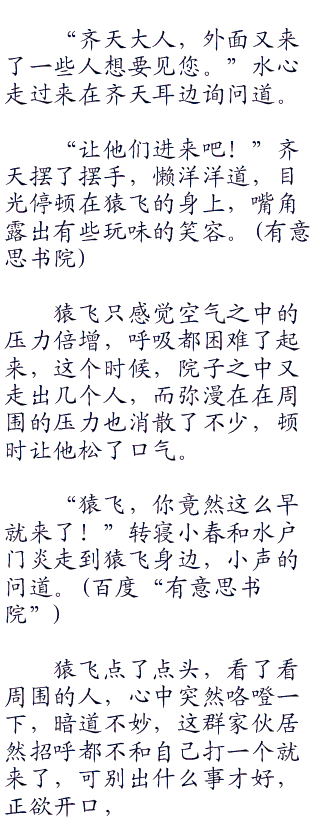 “齐天大人，外面又来
了一些人想要见您。”水心
走过来在齐天耳边询问道。
“让他们进来吧！”齐
天摆了摆手，懒洋洋道，目
光停顿在猿飞的身上，嘴角
露出有些玩味的笑容。(有意
思书院)
猿飞只感觉空气之中的
压力倍增，呼吸都困难了起
来，这个时候，院子之中又
走出几个人，而弥漫在在周
围的压力也消散了不少，顿
时让他松了口气。
“猿飞，你竟然这么早
就来了！”转寝小春和水户
门炎走到猿飞身边，小声的
问道。(百度“有意思书
院”)
猿飞点了点头，看了看
周围的人，心中突然咯噔一
下，暗道不妙，这群家伙居
然招呼都不和自己打一个就
来了，可别出什么事才好，
正欲开口，